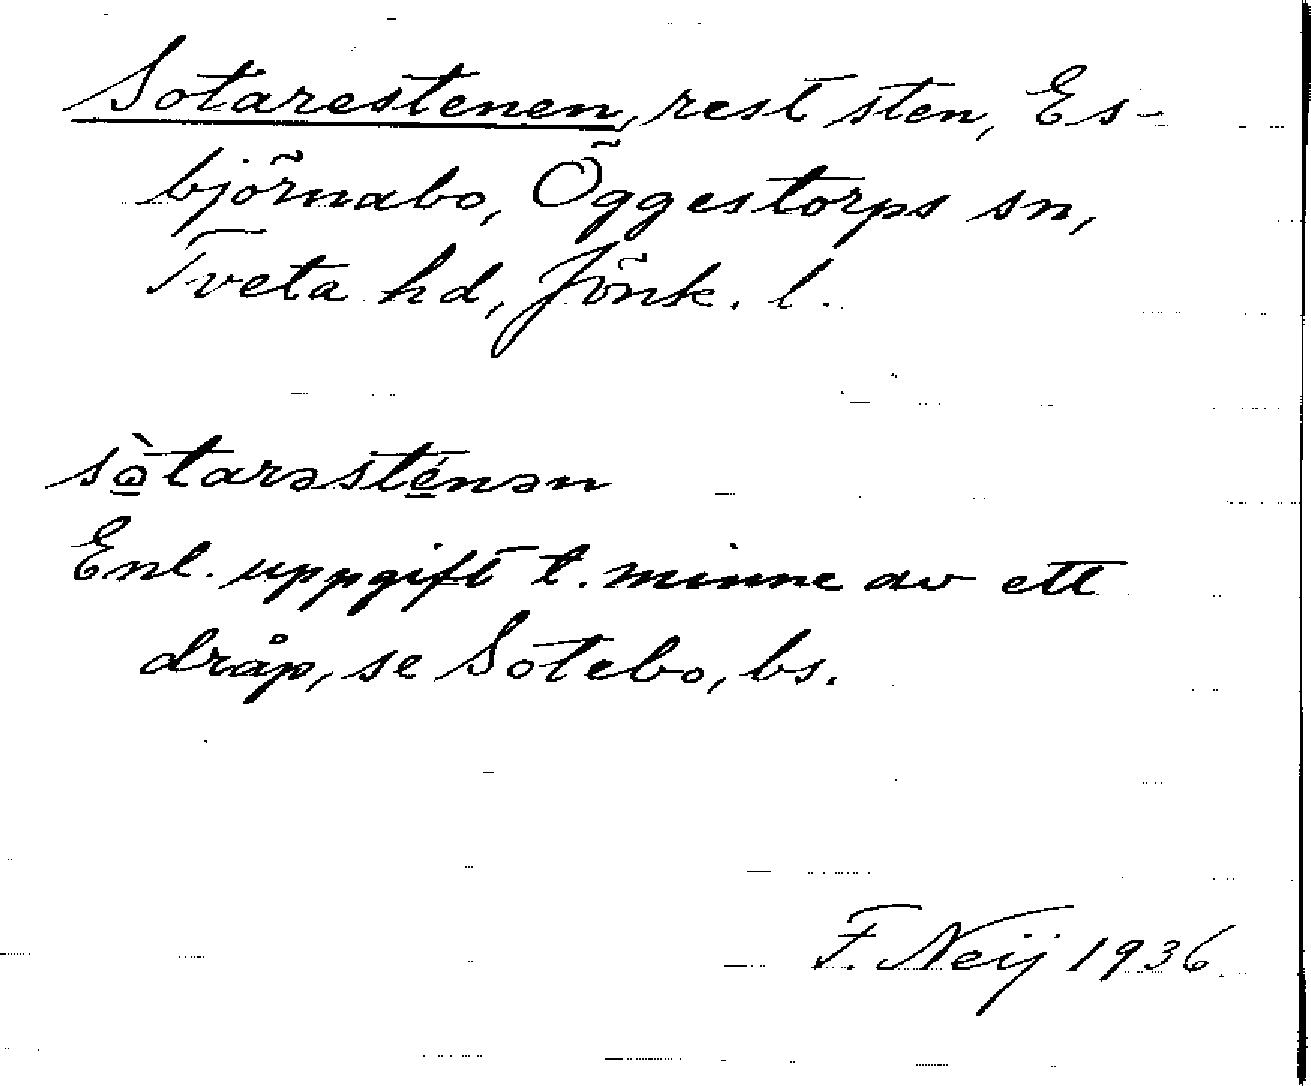 Sotarestenen, rest sten, Es-
björnabo, Öggestorps sn,
Tveta hd, Jönk. l.
sò̱tarəsté̱nən
Enl. uppgift t. minne av ett
dråp, se Sotebo, bs.
F. Neij 1936